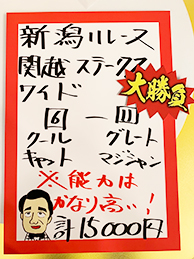 新潟11レース
関越ステークス
大勝負
ワイド
回 一 回
クール グレート
キャット マジシャン
※能力は
かなり高い!
計15000円